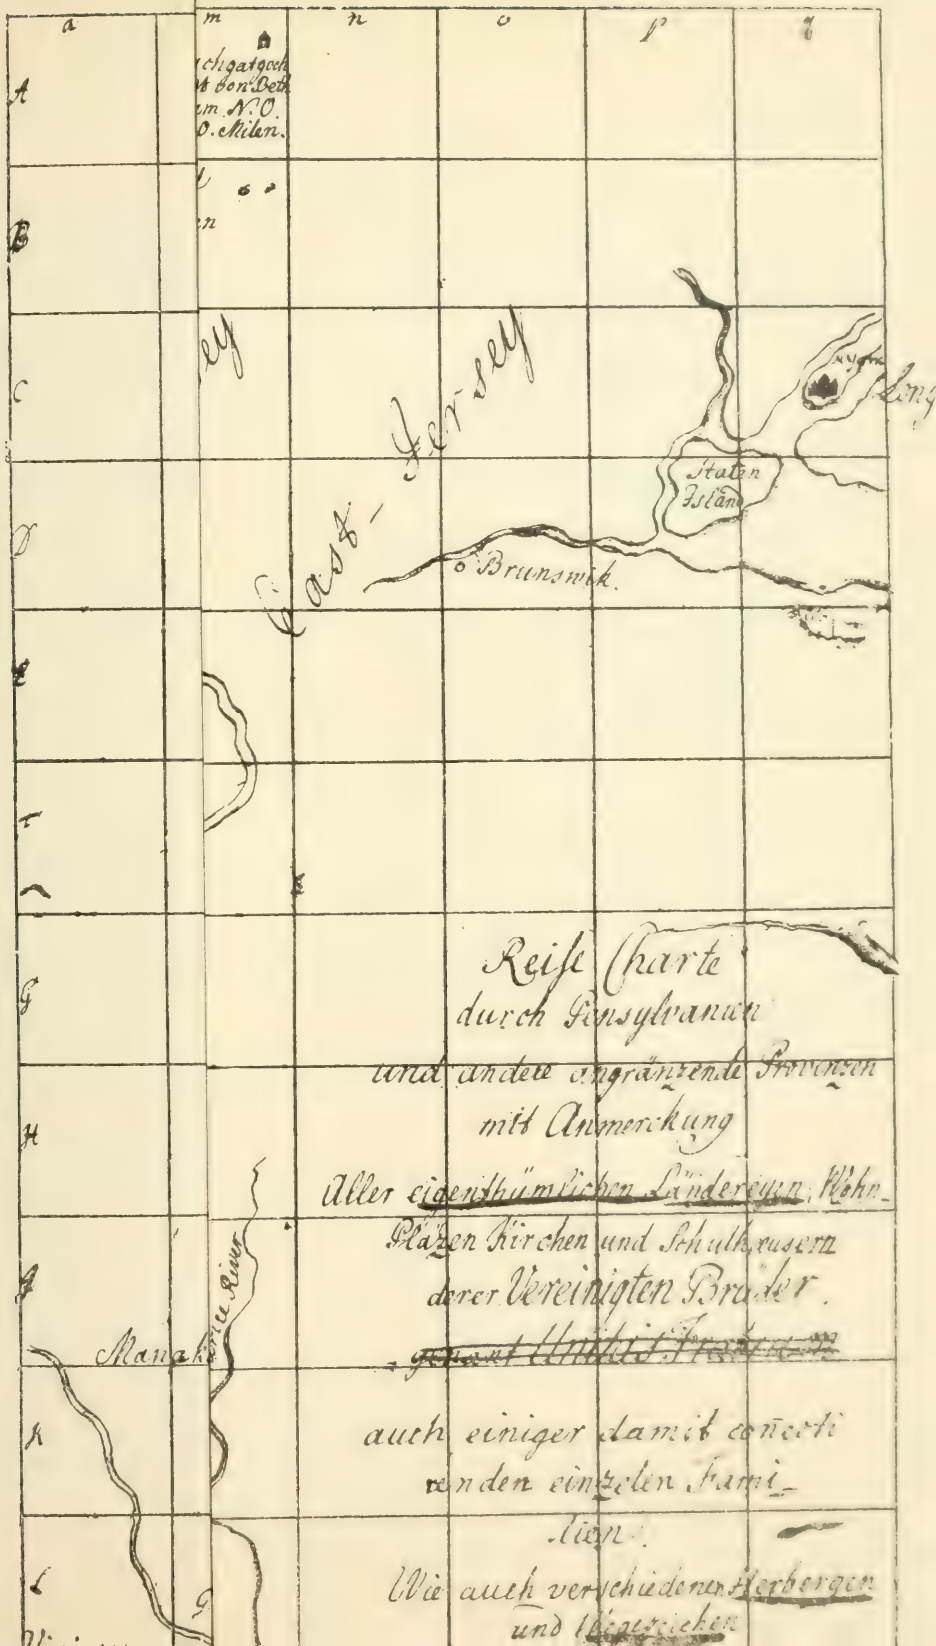 a
m
n
o
p
q
A
chgatgoch
von Beth
em N.O.
0. Milen.
B
en
C
ey
East-Jersey
Long
Staten
Island
D
Brunswik.
G
Reise Charte
durch Pensylvanien
und andere angränzende Provinzen
mit Anmerckung
H
Aller eigenthümlichen Ländereyen, Wohn-
Pläzen Kirchen und Schulhäusern
derer Vereinigten Brüder.
River
Manak
genant Unitas Fratrum
K
auch einiger damit coñecti
renden einzelen Fami-
lien.
L
Wie auch verschiedener Herbergen
und Wegezeichen